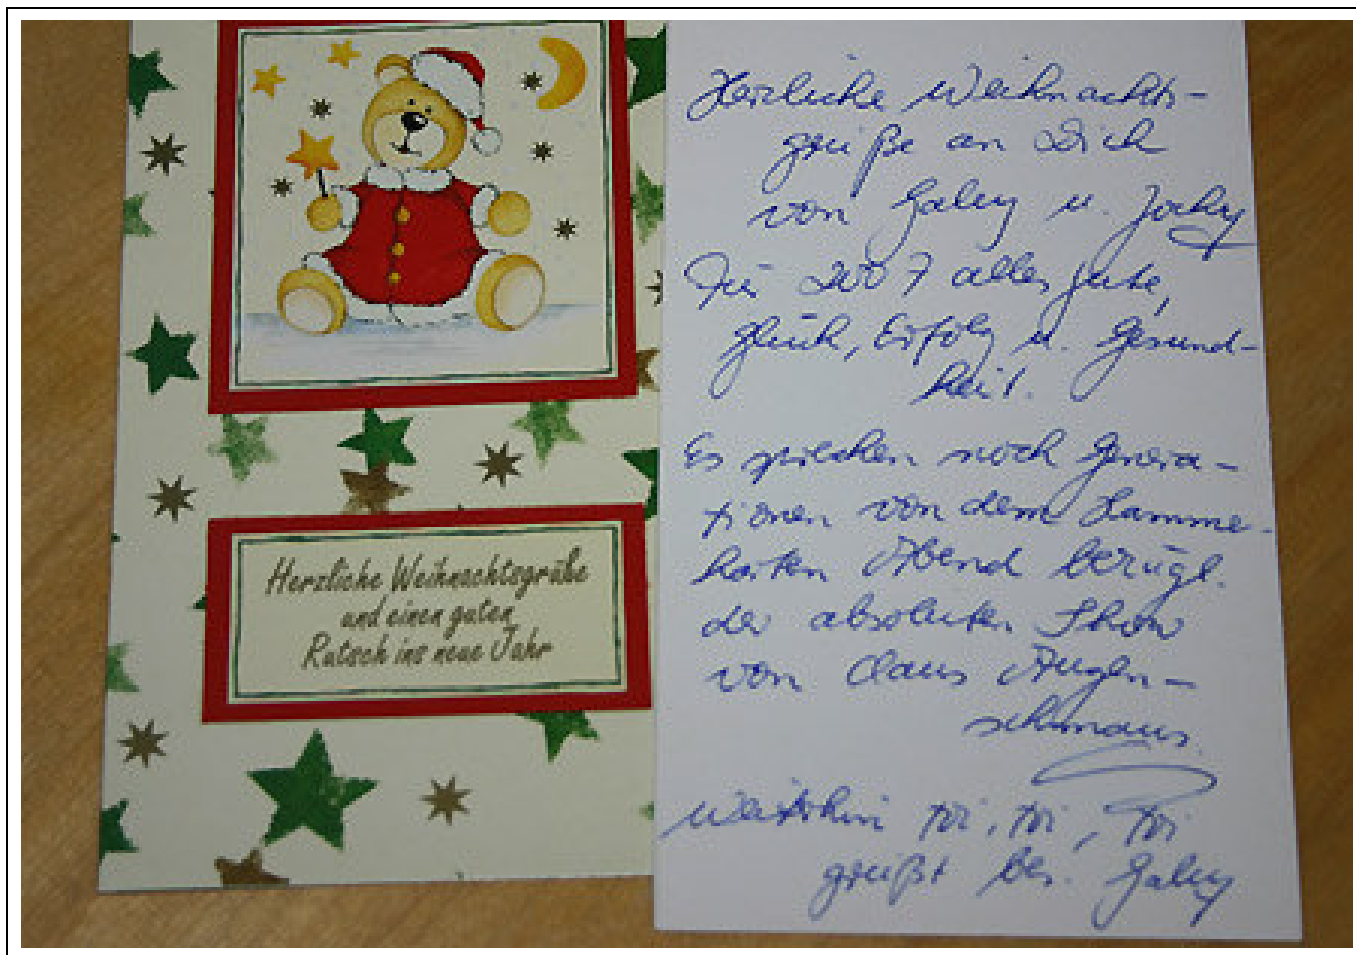 Herzliche Weihnachtsgrüße
und einen guten
Rutsch ins neue Jahr
Herzliche Weihnachts-
grüße an Dich
von Gaby u. Jocky
Für 2007 alles Gute,
Glück, Erfolg u. Gesund-
heit.
Es sprechen noch Genera-
tionen von dem
Abend bezügl.
der absoluten Show
von Claus Augen-
schmaus.
Weiterhin toi, toi, toi
grüßt bes. Gaby